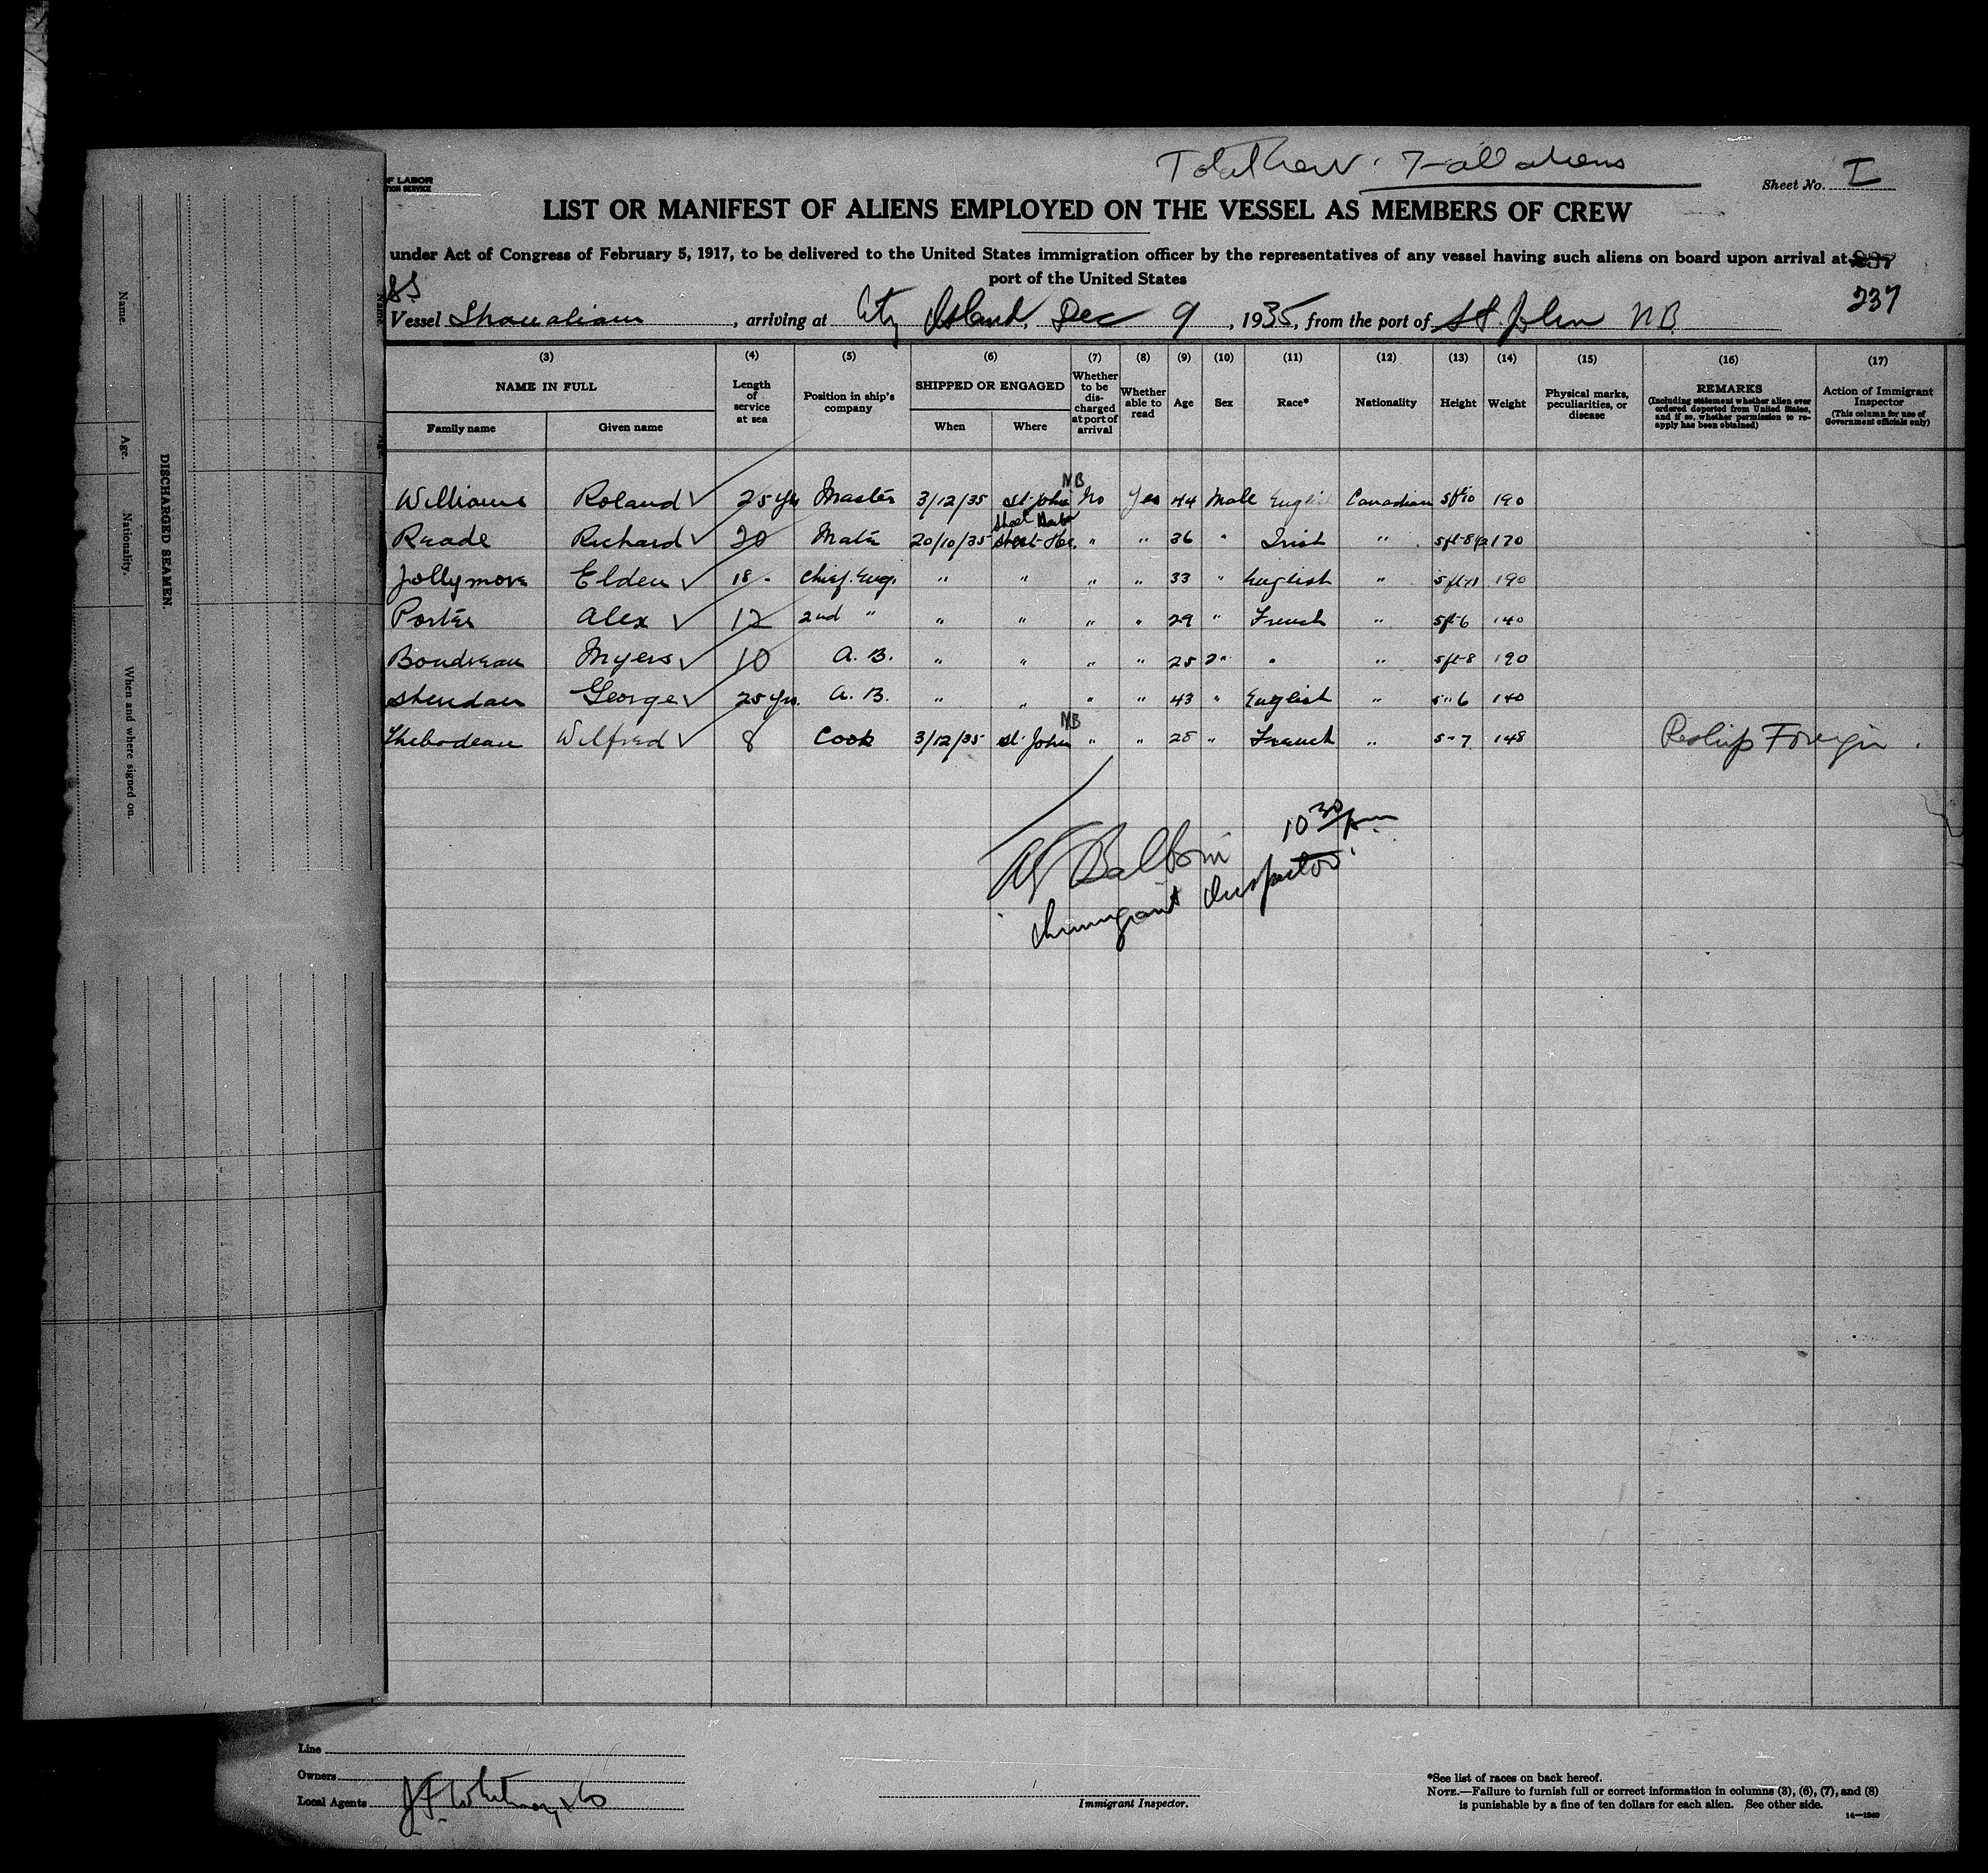 F LABOR
TION SERVICE
Total Crew 7 - all aliens
Sheet No. I
LIST OR MANIFEST OF ALIENS EMPLOYED ON THE VESSEL AS MEMBERS OF CREW
under Act of Congress of February 5, 1917, to be delivered to the United States immigration officer by the representatives of any vessel having such aliens on board upon arrival at
port of the United States
237
SS
Vessel , arriving at City Island, Dec 9, 1935, from the port of St. John NB
(3) (4) (5) (6) (7) (8) (9) (10) (11) (12) (13) (14) (15) (16) (17)
NAME IN FULL
Family name Given name
Length of service at sea
Position in ship's company
SHIPPED OR ENGAGED
When Where
Whether to be discharged at port of arrival
Whether able to read
Age
Sex
Race*
Nationality
Height
Weight
Physical marks, peculiarities, or disease
REMARKS
(Including statement whether alien ever ordered deported from United States, and if so, whether permission to reapply has been obtained)
Action of Immigrant Inspector
(This column for use of Government officials only)
Williams Roland 25 yrs Master 3/12/35 St John NB No Yes 44 Male English Canadian 5ft10 190
Richard 20 Mate 20/10/35 Sheet Hbr. " " 36 " Irish " 170
Jollymore Elden 18 Chief. Eng. " " " " 33 " English " 190
Porter Alex 12 2nd " " " " " 29 " French " 5ft-6 140
Boudreau Myers 10 A. B. " " " " 25 " " 5ft-8 190
George 25 yrs. A. B. " " " " 43 " English " 5"6 140
Thebodeau Wilfred 8 Cook 3/12/35 St. John NB " " " French " 5-7 148 Reship Foreign
10 30 pm
Immigrant Inspector
Line
Owners
Local Agents J F Whitney & Co
Immigrant Inspector.
*See list of races on back hereof.
NOTE.—Failure to furnish full or correct information in columns (3), (6), (7), and (8)
is punishable by a fine of ten dollars for each alien. See other side.
14—1240
DISCHARGED SEAMEN.
Name.
Age.
Nationality.
When and where signed on.